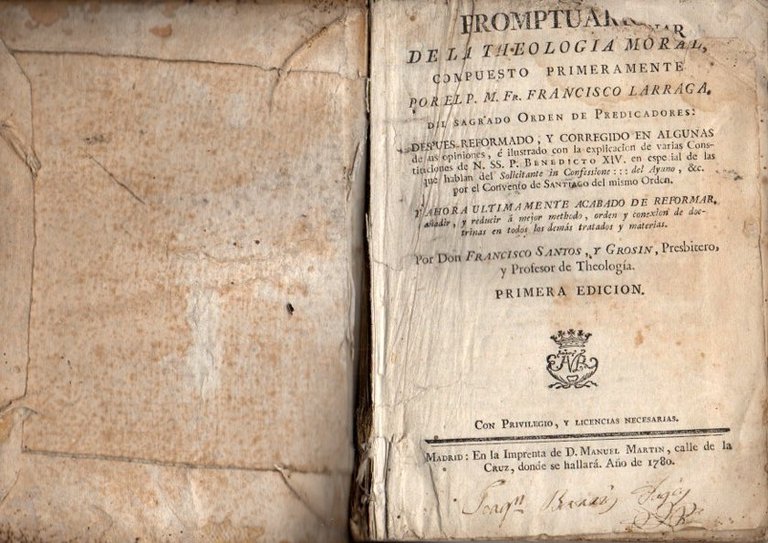 PROMPTUARIO
DE LA THEOLOGIA MORAL,
COMPUESTO PRIMERAMENTE
POR EL P. M. FR. FRANCISCO LARRAGA,
DEL SAGRADO ORDEN DE PREDICADORES:
DESPUES REFORMADO, Y CORREGIDO EN ALGUNAS
de sus opiniones, é ilustrado con la explicacion de varias Cons-
tituciones de N. SS. P. BENEDICTO XIV. en especial de las
que hablan del Solicitante in Confessione ::: del Ayuno, &c.
por el Convento de SANTIAGO del mismo Orden.
Y AHORA ULTIMAMENTE ACABADO DE REFORMAR,
añadir, y reducir á mejor methodo, orden y conexion de doc-
trinas en todos los demás tratados y materias.
Por DON FRANCISCO SANTOS, Y GROSIN, Presbitero,
y Profesor de Theología.
PRIMERA EDICION.
CON PRIVILEGIO, Y LICENCIAS NECESARIAS.
MADRID: En la Imprenta de D. MANUEL MARTIN, calle de la
CRUZ, donde se hallará. Año de 1780.